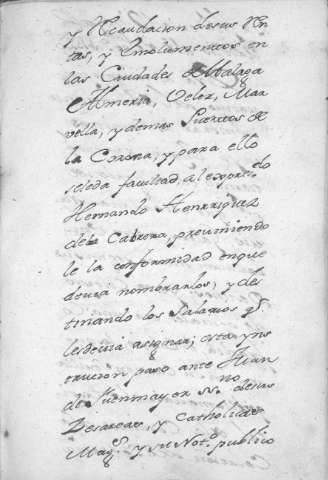 y Recaudacion de sus Ren
tas, y Emolumentos en
las Ciudades de Malaga
Almeria, Velez, Mar
vella, y demas Puertos de
la Corona, y para ello
se le da facultad, al expresado
Hernando Henrriquez
de la Cabrera, previniendo
le la conformidad en que
devia nombrarlos, y des
tinando los Salarios q.e
les devia asignar; esta yns
trucion paso ante Juan
de Fuenmayor ss.no de sus
Cesareas, y Catholicas
Mag.s y su Not.o publico